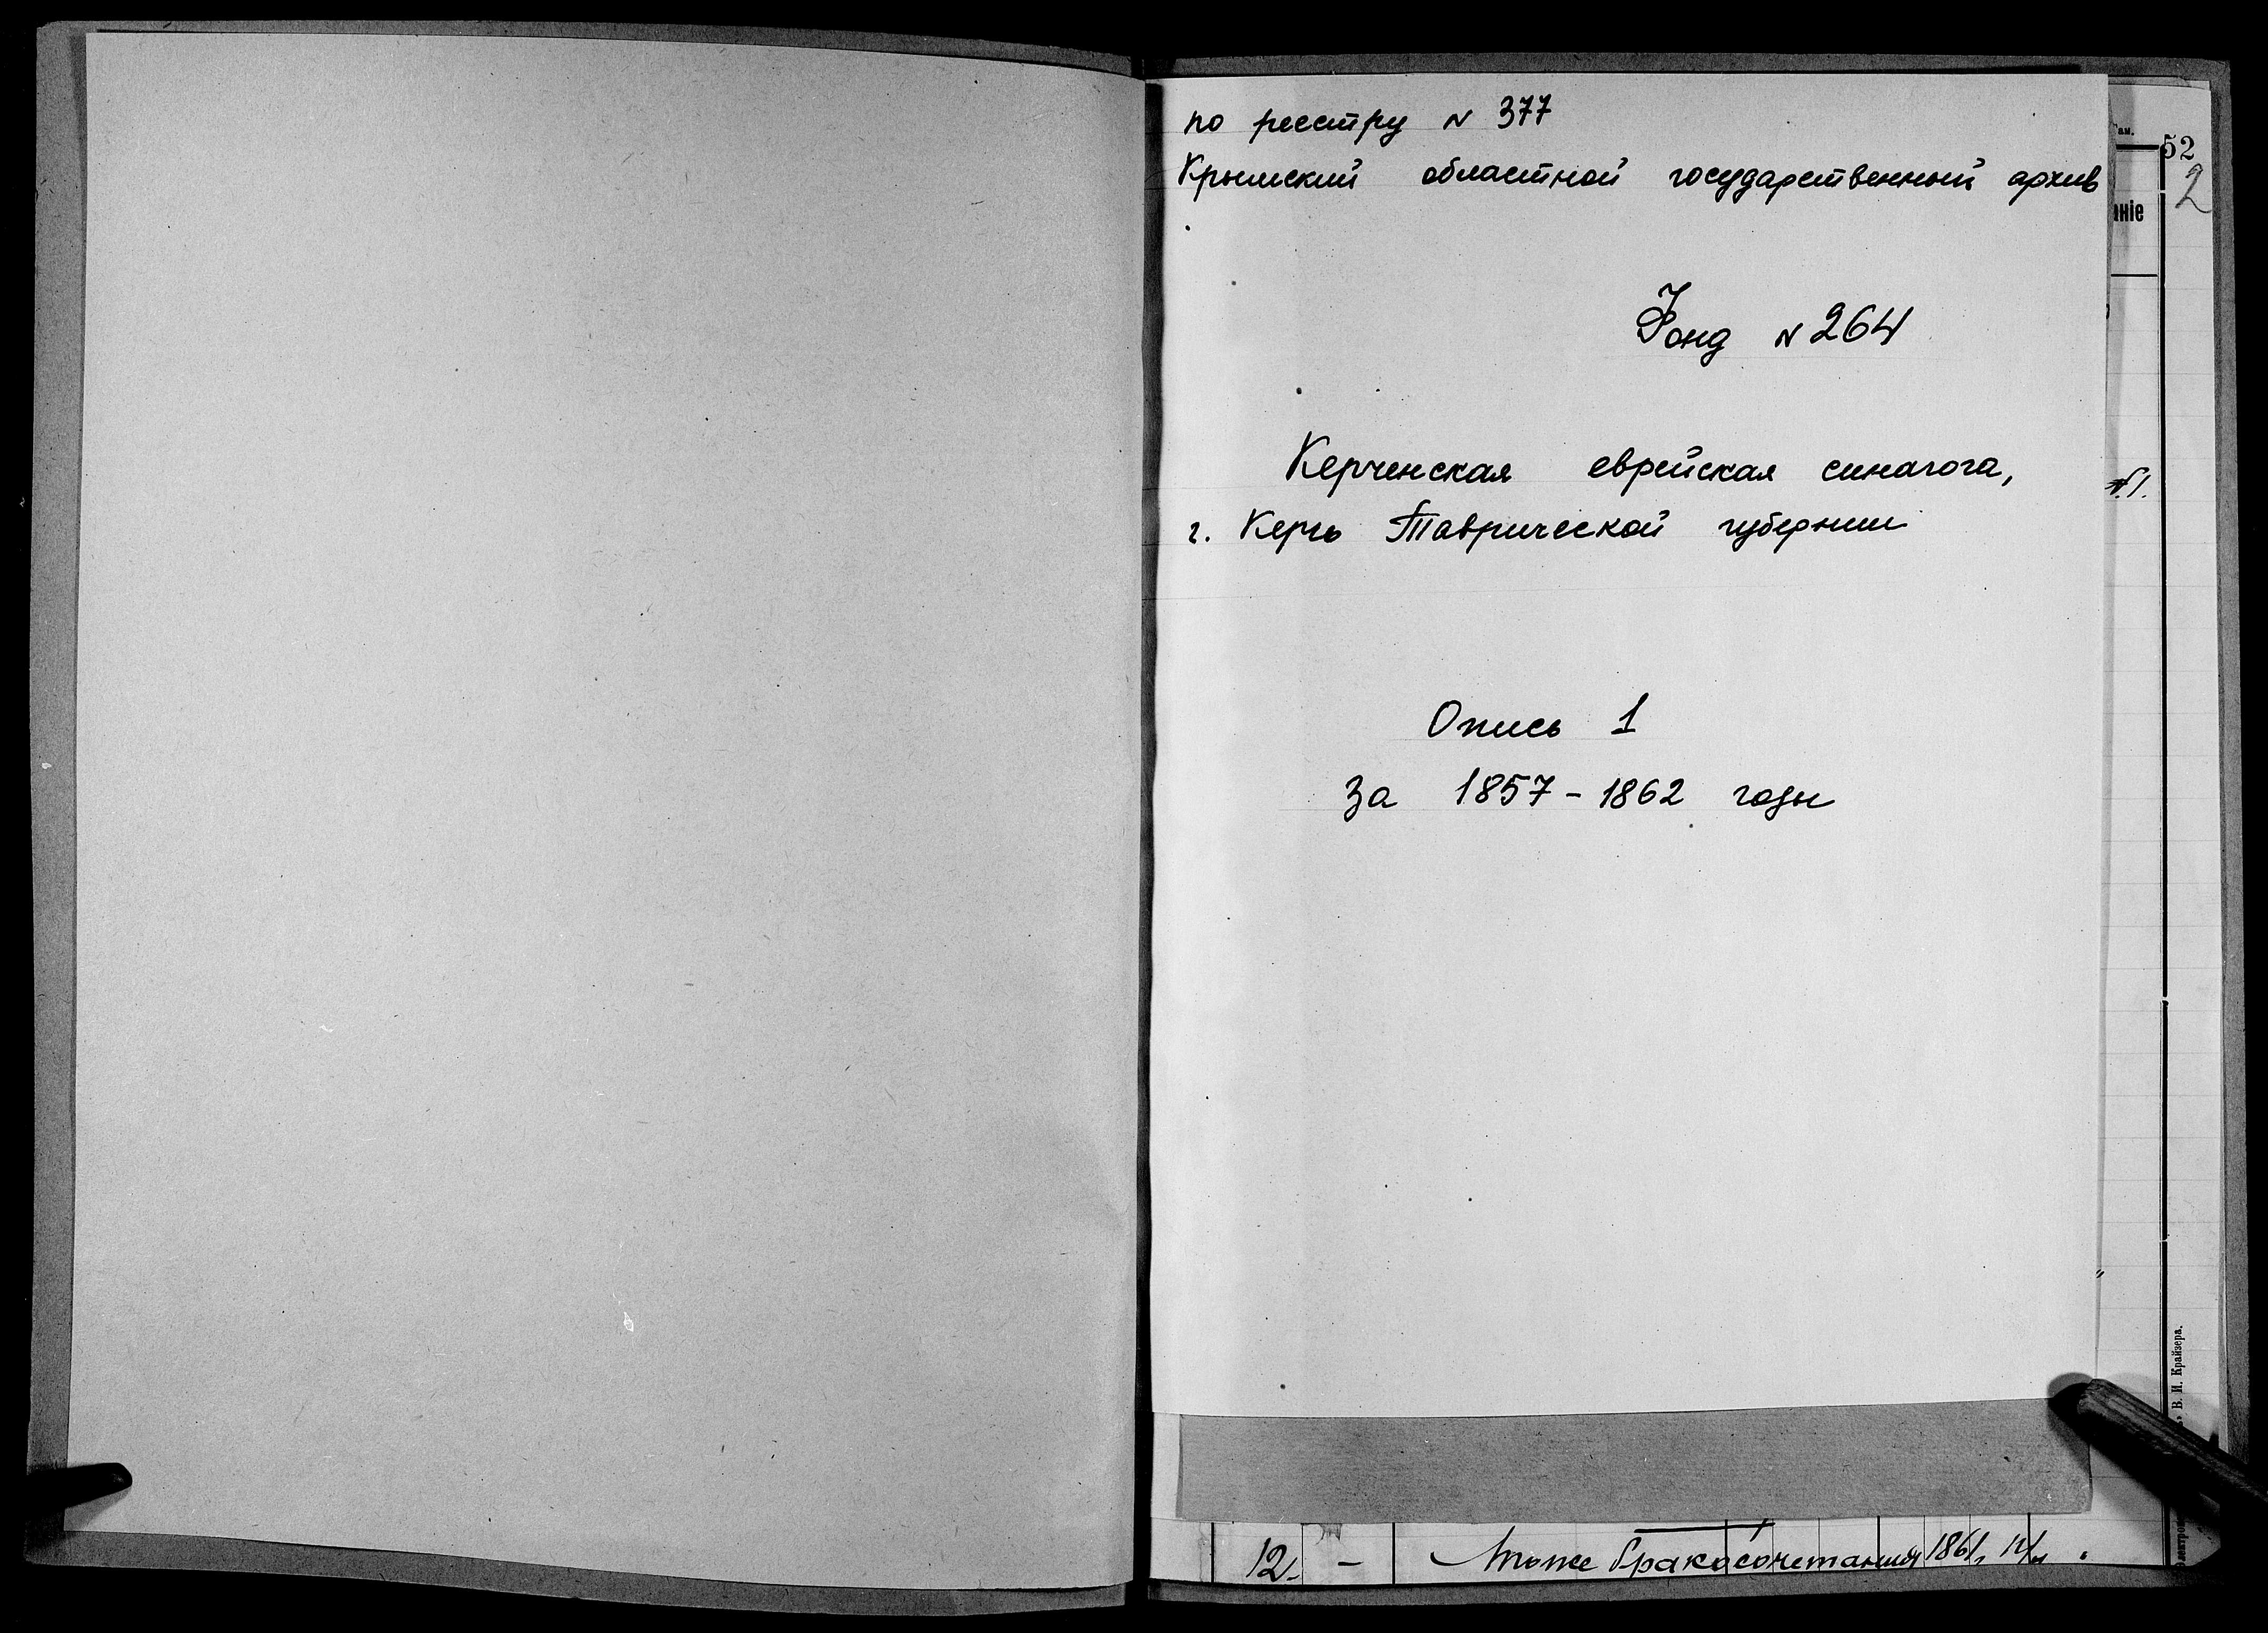 по реестру N 377
Крымский областной государственный архив
Фонд N 264
Керченская еврейская синагога,
г. Керчь Таврической губернии
Опись 1
За 1857-1862 годы
52
2
аніе
В. И. Крайзера.
12. - Тоже бракосочетания 1861